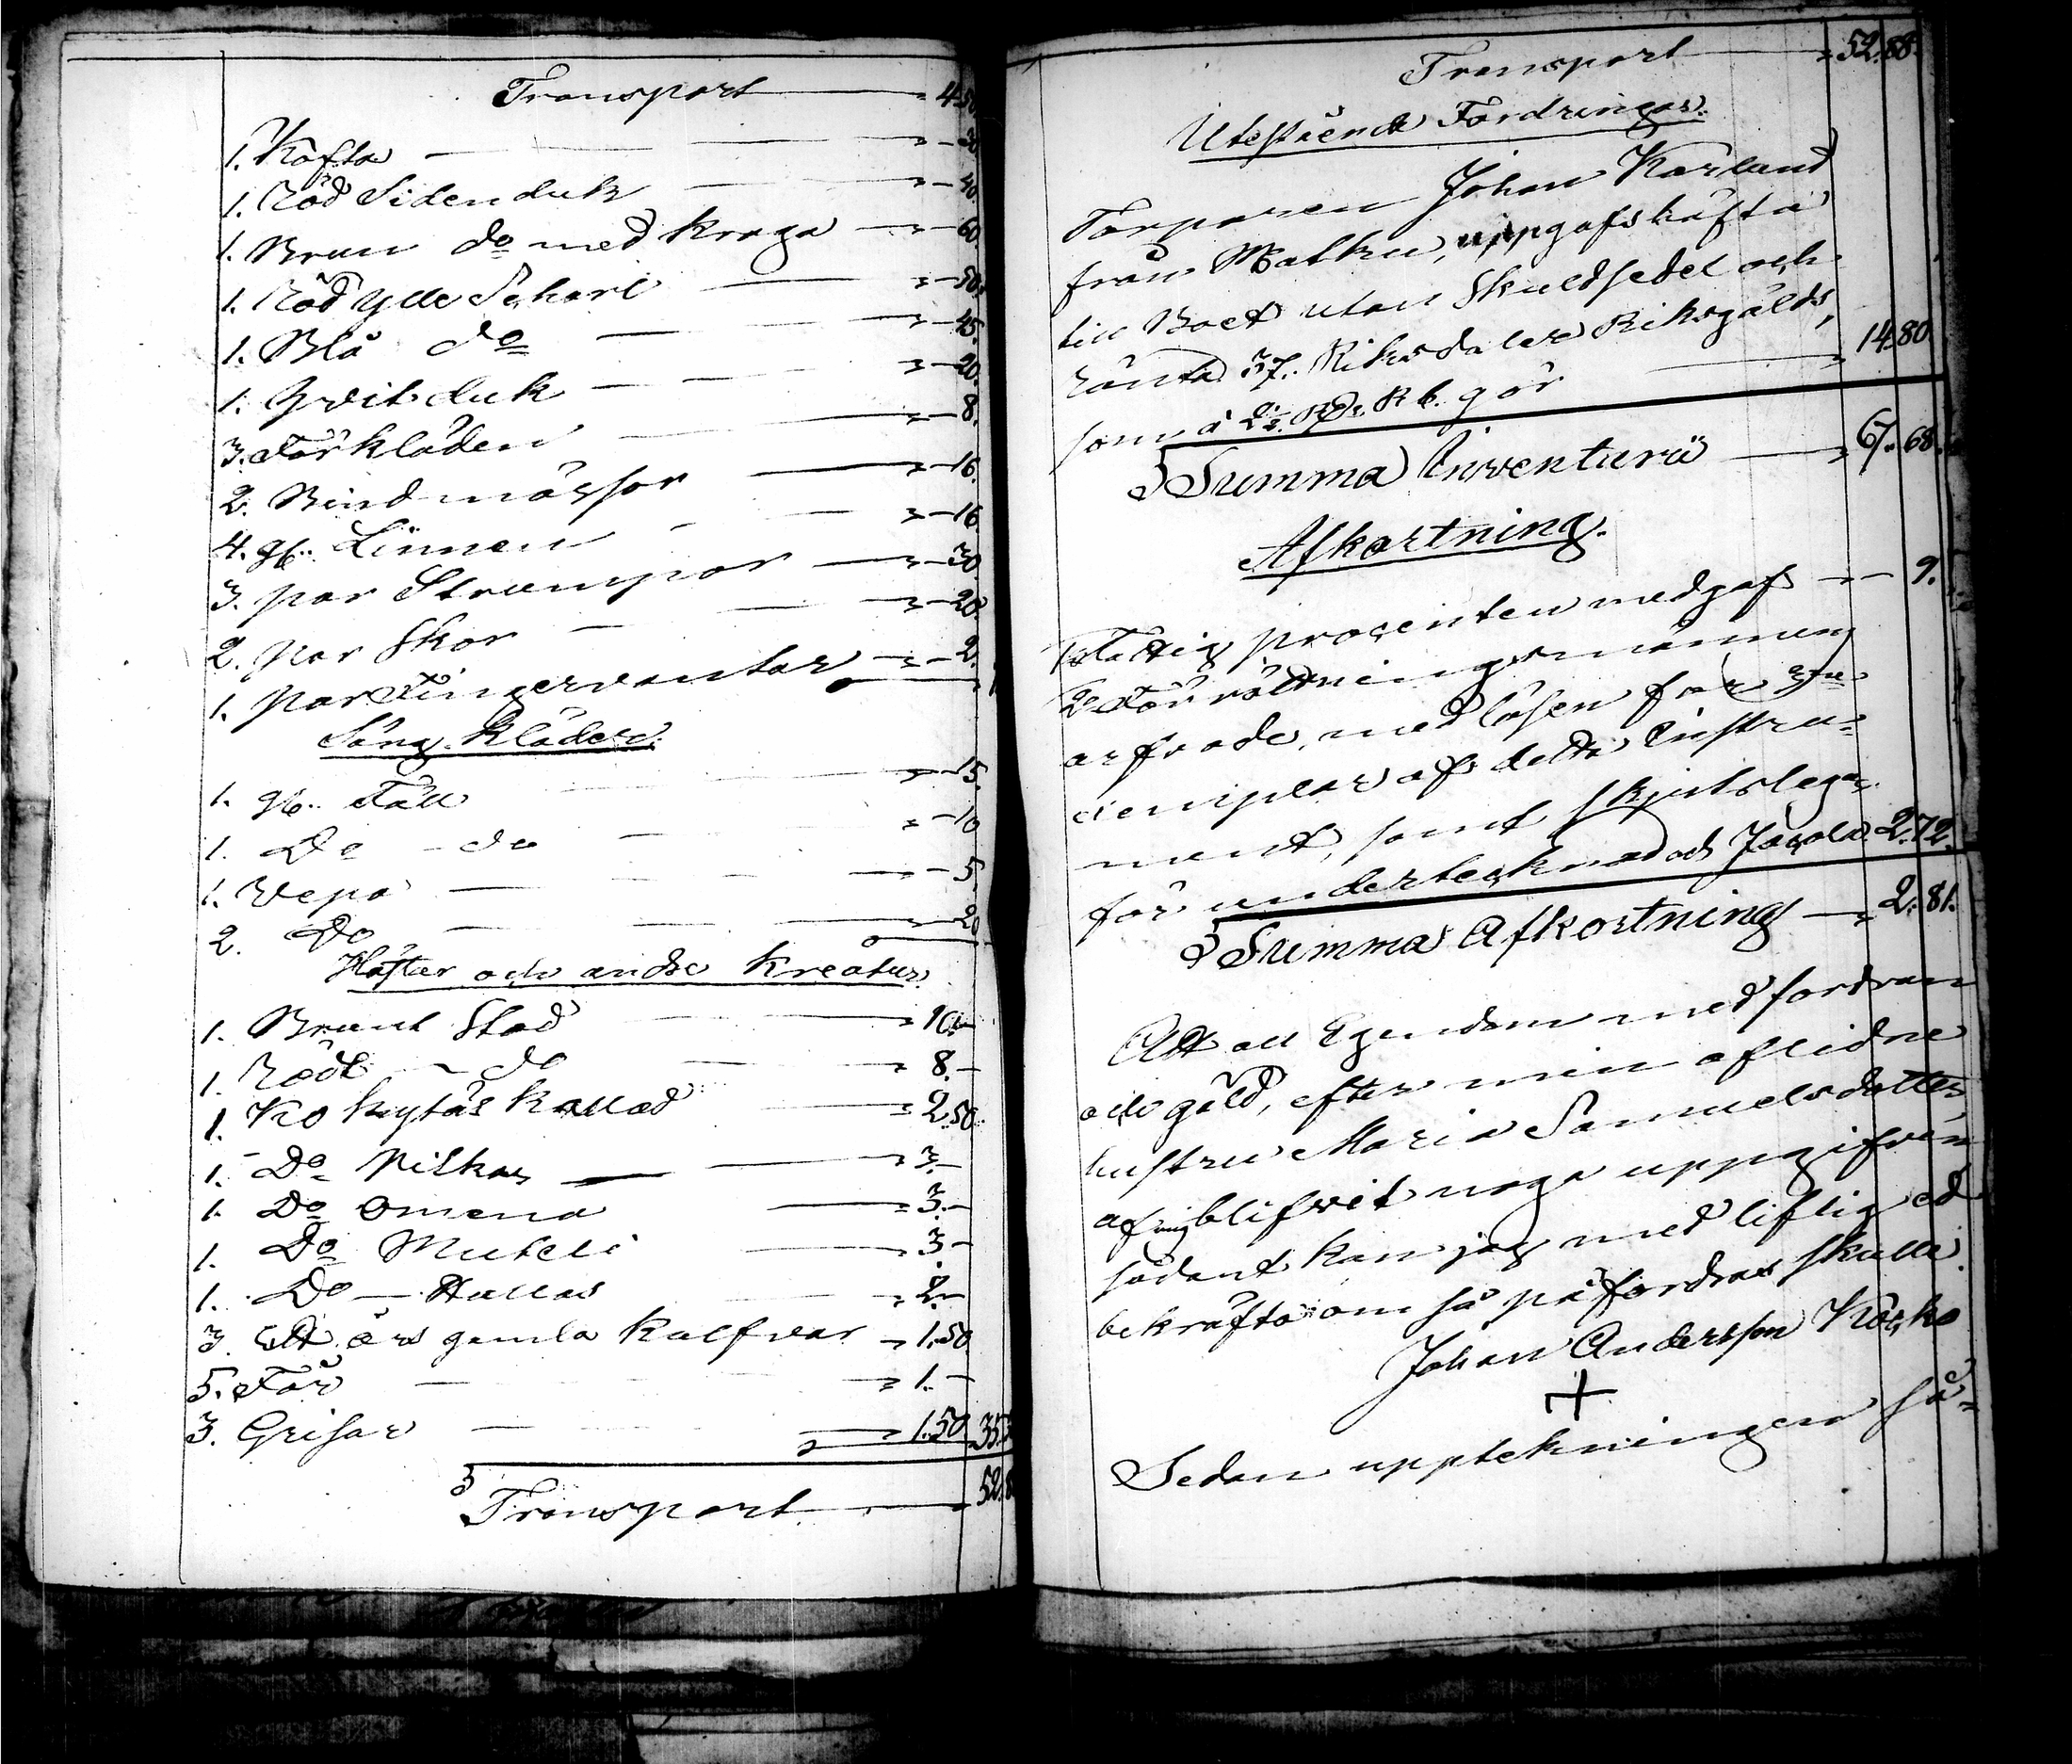 Transport — 4.50
1. Kofta — " — 20
1. Röd Sidenduk — " — 40
1. Brun do med Kraga — " — 60
1. Röd ylle Scharl — " — 50.
1. Blå do — " — 45.
1. Hvit duk — " — 20.
3. Förkläden — " — 8.
2. Bindmössor — " — 16.
4. gl. Linnen — " — 16
3. par Strumpor — " — 30
2. par Skor — " — 20.
1. par Fingervantar — " — 2.
Säng kläder.
1. gl. Fäll — " — 15.
1. Do do — " — 10
1. Vepa — " — 5.
2. Do — " — 20
Hästar och andre Kreatur.
1. Brunt Stod — " 10.—
1. Rödt do — " 8.—
1. Ko kallad — " 2.50.
1. Do Pilkas — " 3.—
1. Do Omena — " 3.—
1. Do Muteli — " 3.—
1. Do — Hallas — " 2.—
3. Ett års gamla Kalfvar — " 1.50
5. Får — " 1.—
3. Grisar — " 1.50 35.
Transport — 52.8
Transport — " 52.88
Utestående Fordringar.
Torparen Johan Karlund
från Matku, uppgafs häfta
till Boet utan Skuldsedel och
ränta 37. Riksdaler Riksgälds,
som à 2½ Rdr. R b. gör — " 14.80
Summa Inventarii — " 67.68.
Afkortning.
1. Fattig procenten medgaf — " — 9.
2. Förrättningsmännen
arfvode, med lösen för
exemplar af detta Instru=
ment, samt skjutslega
för undertecknad och 2.72.
Summa Afkortning — " 2.81.
Att all Egendom med fordran
och gäld, efter min aflidne
hustru Maria Samuelsdotter,
af mig blifvit noga uppgifven
sådant kan jag med liflig ed
bekräfta om så påfordras skulle.
Johan Andersson
+
Sedan upptekningen så=